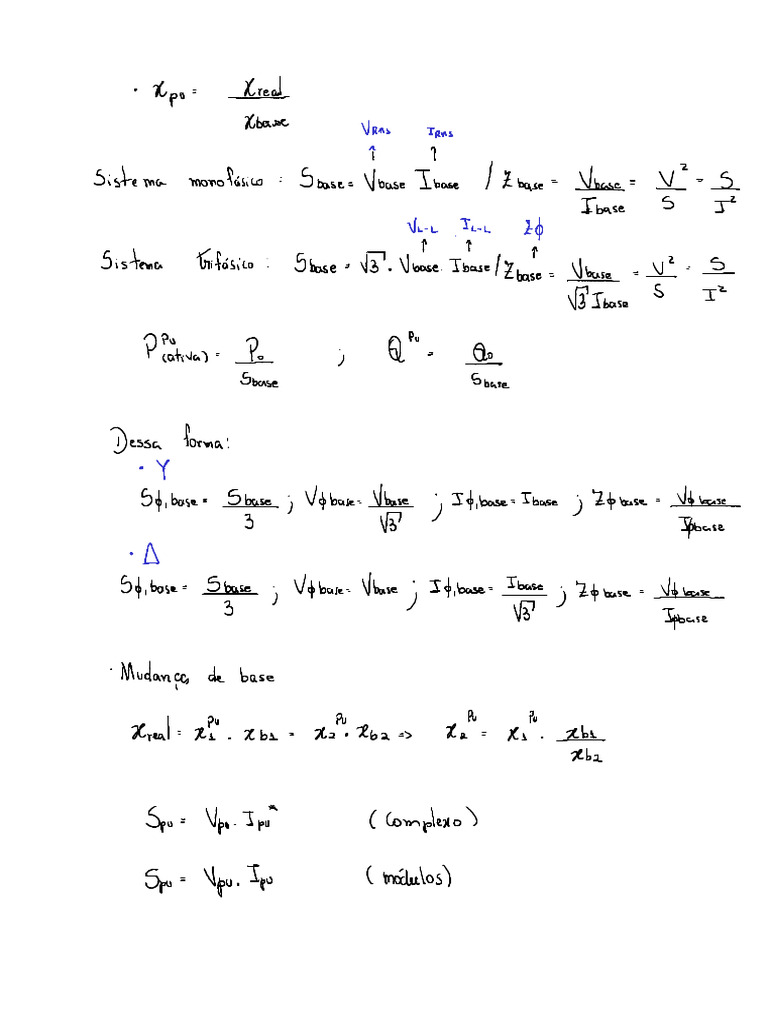 • x_pu = x_real / x_base
V_RMS I_RMS
Sistema monofásico : S_base = V_base I_base / Z_base = V_base / I_base = V² / S = S / I²
V_L-L I_L-L Zϕ
Sistema trifásico : S_base = √3 · V_base · I_base / Z_base = V_base / √3 I_base = V² / S = S / I²
P^pu (ativa) = P_o / S_base ; Q^pu = Q_o / S_base
Dessa forma:
• Y
Sϕ,base = S_base / 3 ; Vϕ base = V_base / √3 ; Iϕ,base = I_base ; Zϕ base = Vϕ base / Iϕ base
• Δ
Sϕ,base = S_base / 3 ; Vϕ base = V_base ; Iϕ,base = I_base / √3 ; Zϕ base = Vϕ base / Iϕ base
• Mudança de base
x_real = x_1^pu · x_b1 = x_2^pu · x_b2 => x_2^pu = x_1^pu · x_b1 / x_b2
S_pu = V_pu · I_pu* (complexo)
S_pu = V_pu · I_pu (módulos)